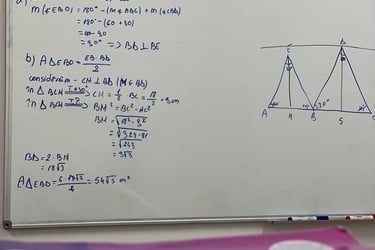 m(∢EBD) = 180° - (m∢ABC) + m(∢CBD)
= 180° - (60 + 30)
= 180 - 90
= 90° => BD ⊥ BE
b) A△EBD = EB·BD / 2
consideram - CM ⊥ BD
în △ BCM CM = 1/2 · BC = 18/2 = 9 m
în △ BCM T.P. BM² = BC² - MC²
BM = √18² - 9²
= √324 - 81
= √243
= 9√3
BD = 2 · BM
= 18√3
A△EBD = 6·18√3 / 2 = 54√3 m²
C D
30°
A M B S